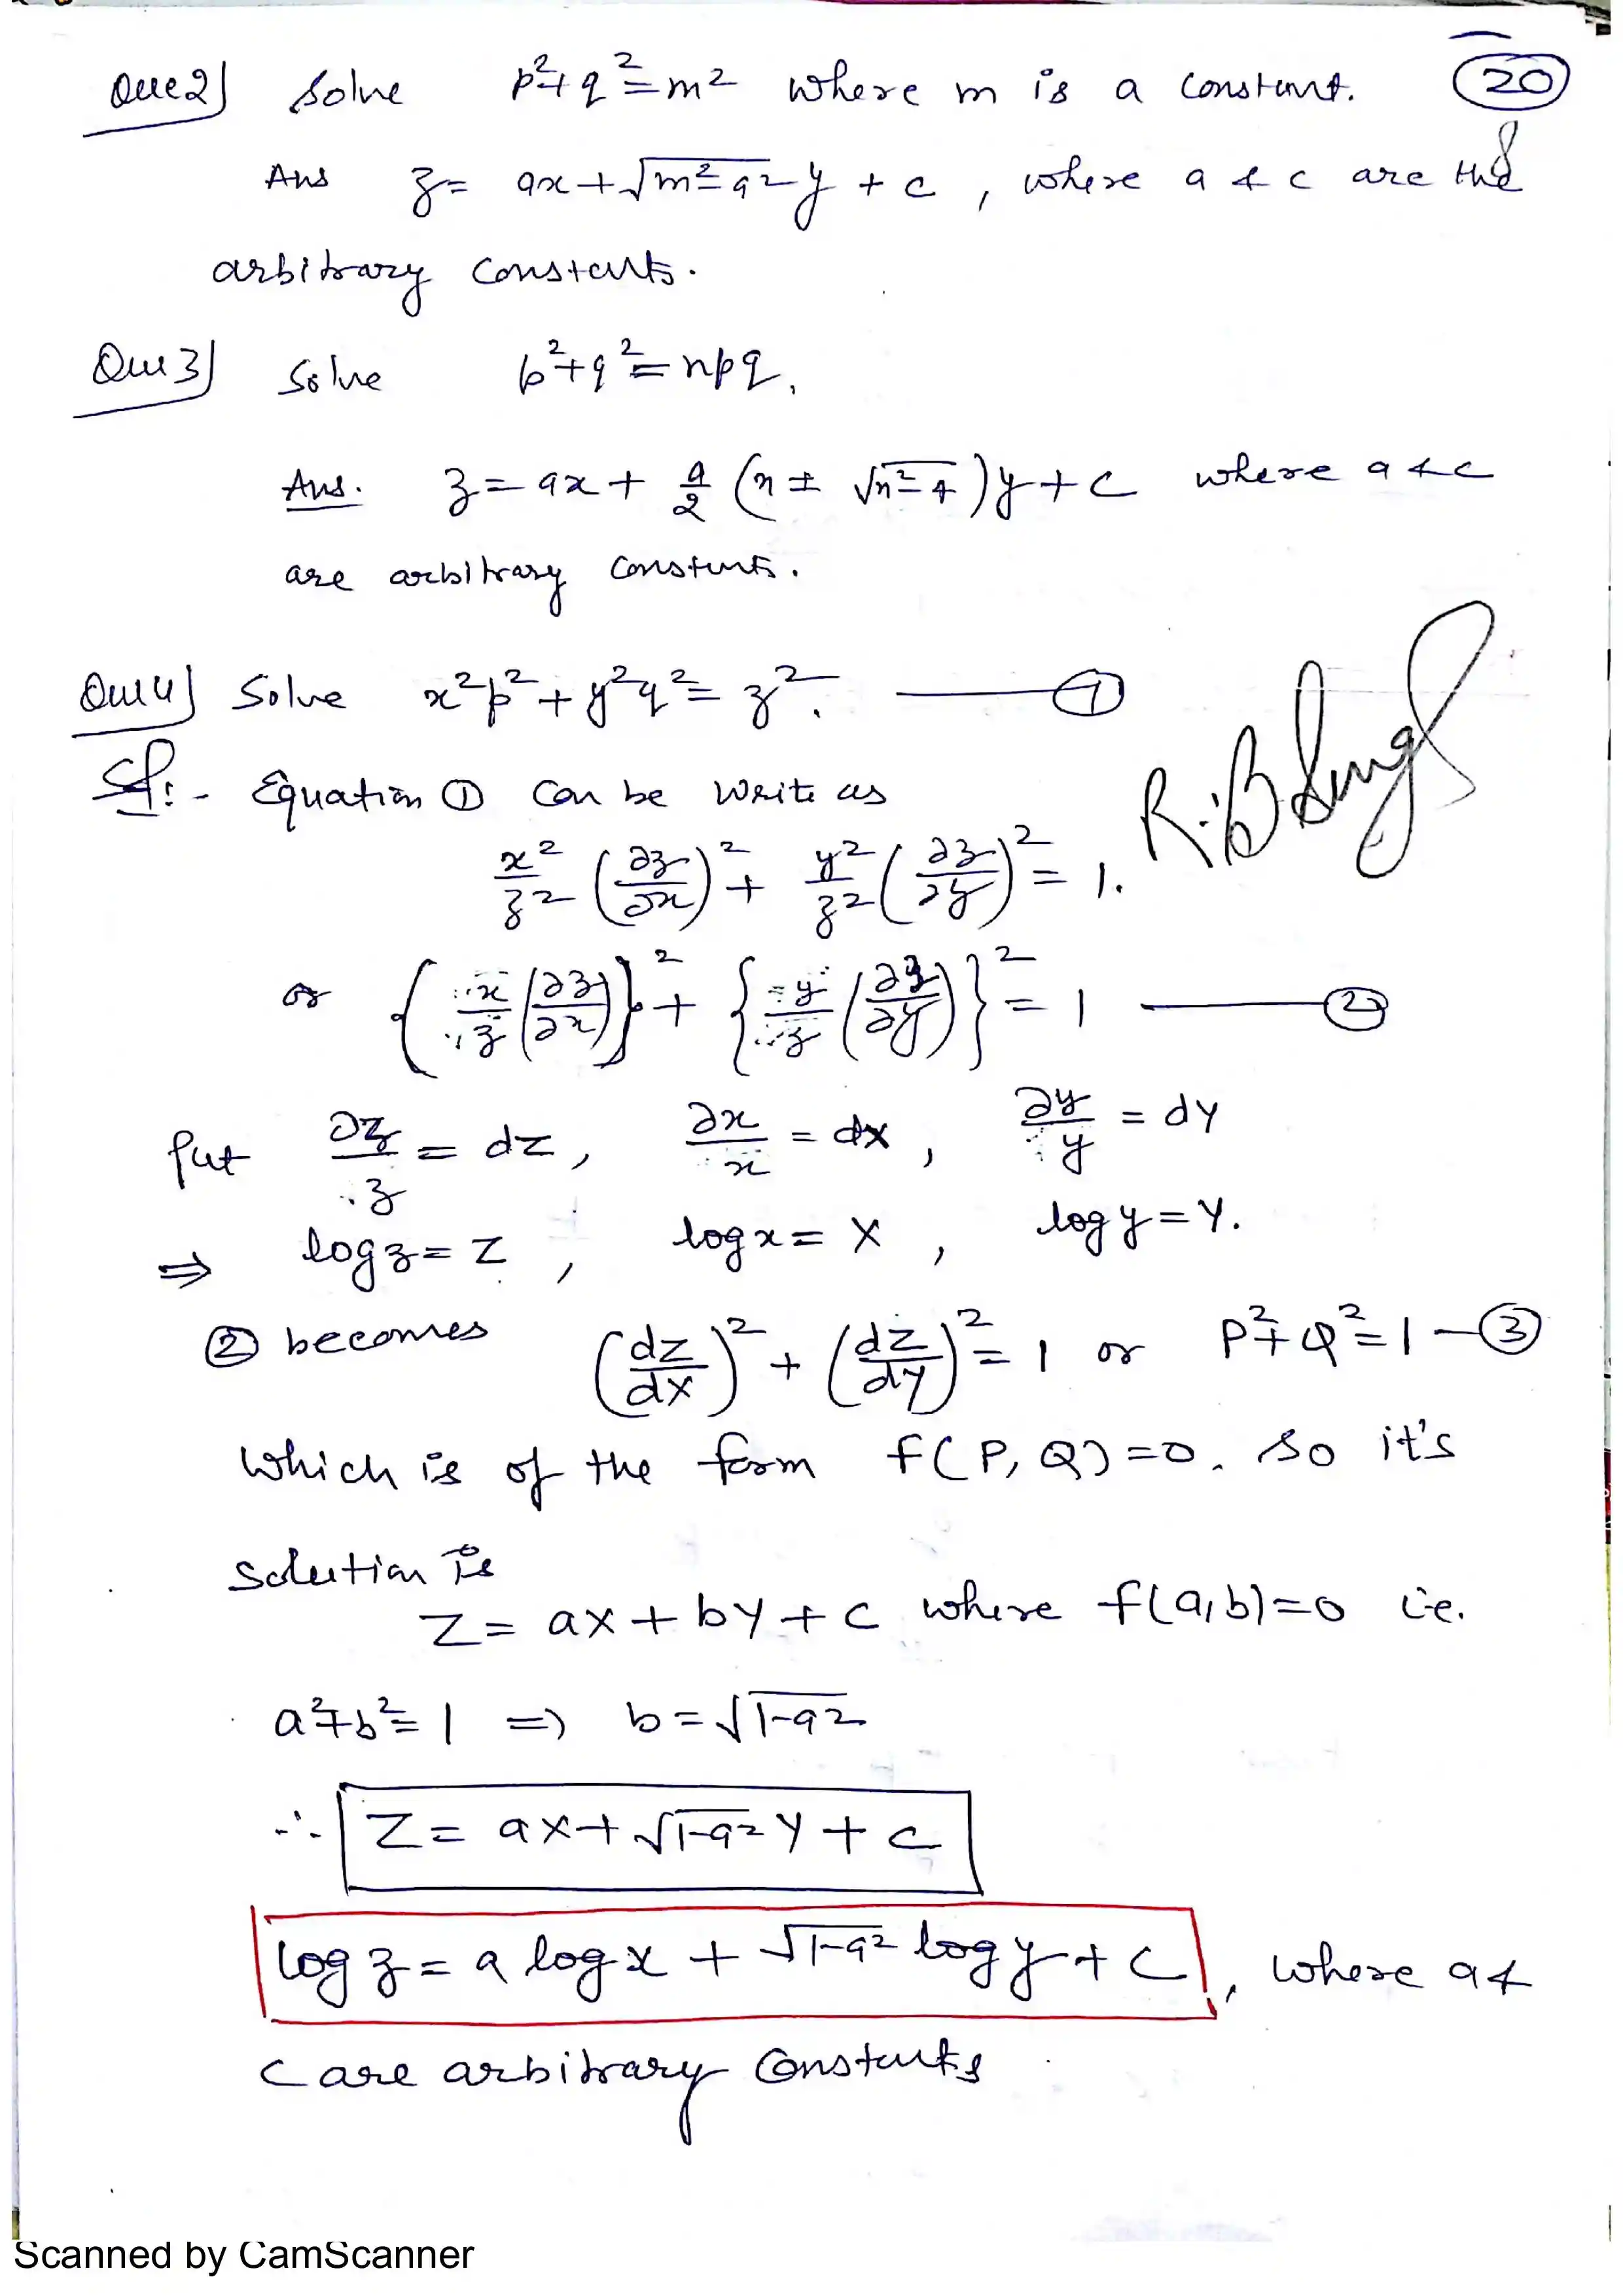 Que 2) Solve p²+q²=m² where m is a constant. (20)
Ans z = ax+√(m²-a²) y + c , where a & c are the
arbitrary constants.
Que 3) Solve p²+q²=npq.
Ans. z = ax + a/2 (n ± √(n²-4)) y + c where a & c
are arbitrary constants.
Que 4) Solve x²p² + y²q² = z². —— ①
Sol:- Equation ① can be write as
x²/z² (∂z/∂x)² + y²/z² (∂z/∂y)² = 1.
R.B Singh
or {x/z (∂z/∂x)}² + {y/z (∂z/∂y)}² = 1 —— ②
Put ∂z/z = dZ, ∂x/x = dX, ∂y/y = dY
⇒ log z = Z, log x = X, log y = Y.
② becomes (dZ/dX)² + (dZ/dY)² = 1 or P²+Q²=1 — ③
which is of the form f(P, Q) = 0. So it's
solution is
Z = aX + bY + c where f(a,b)=0 i.e.
a²+b²=1 ⇒ b = √(1-a²)
∴ Z = aX+√(1-a²) Y + c
log z = a log x + √(1-a²) log y + c , where a &
c are arbitrary constants
Scanned by CamScanner